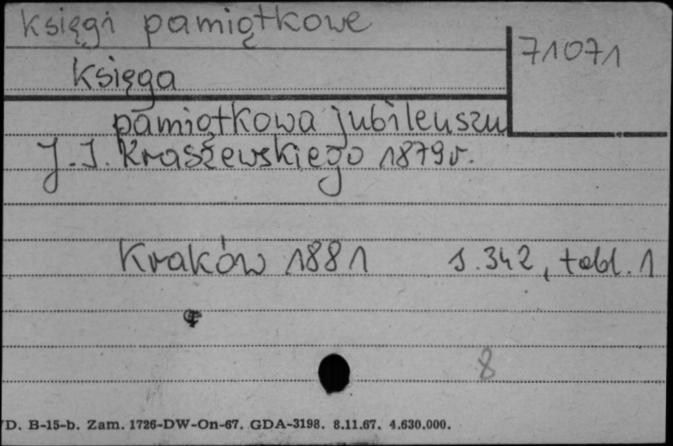 Księgi pamiątkowe
71071
Księga
pamiątkowa jubileuszu
J. I. Kraszewskiego 1879 r.
Kraków 1881 s. 342, tabl. 1
8
D. B-15-b. Zam. 1726-DW-On-67. GDA-3198. 8.11.67. 4.630.000.